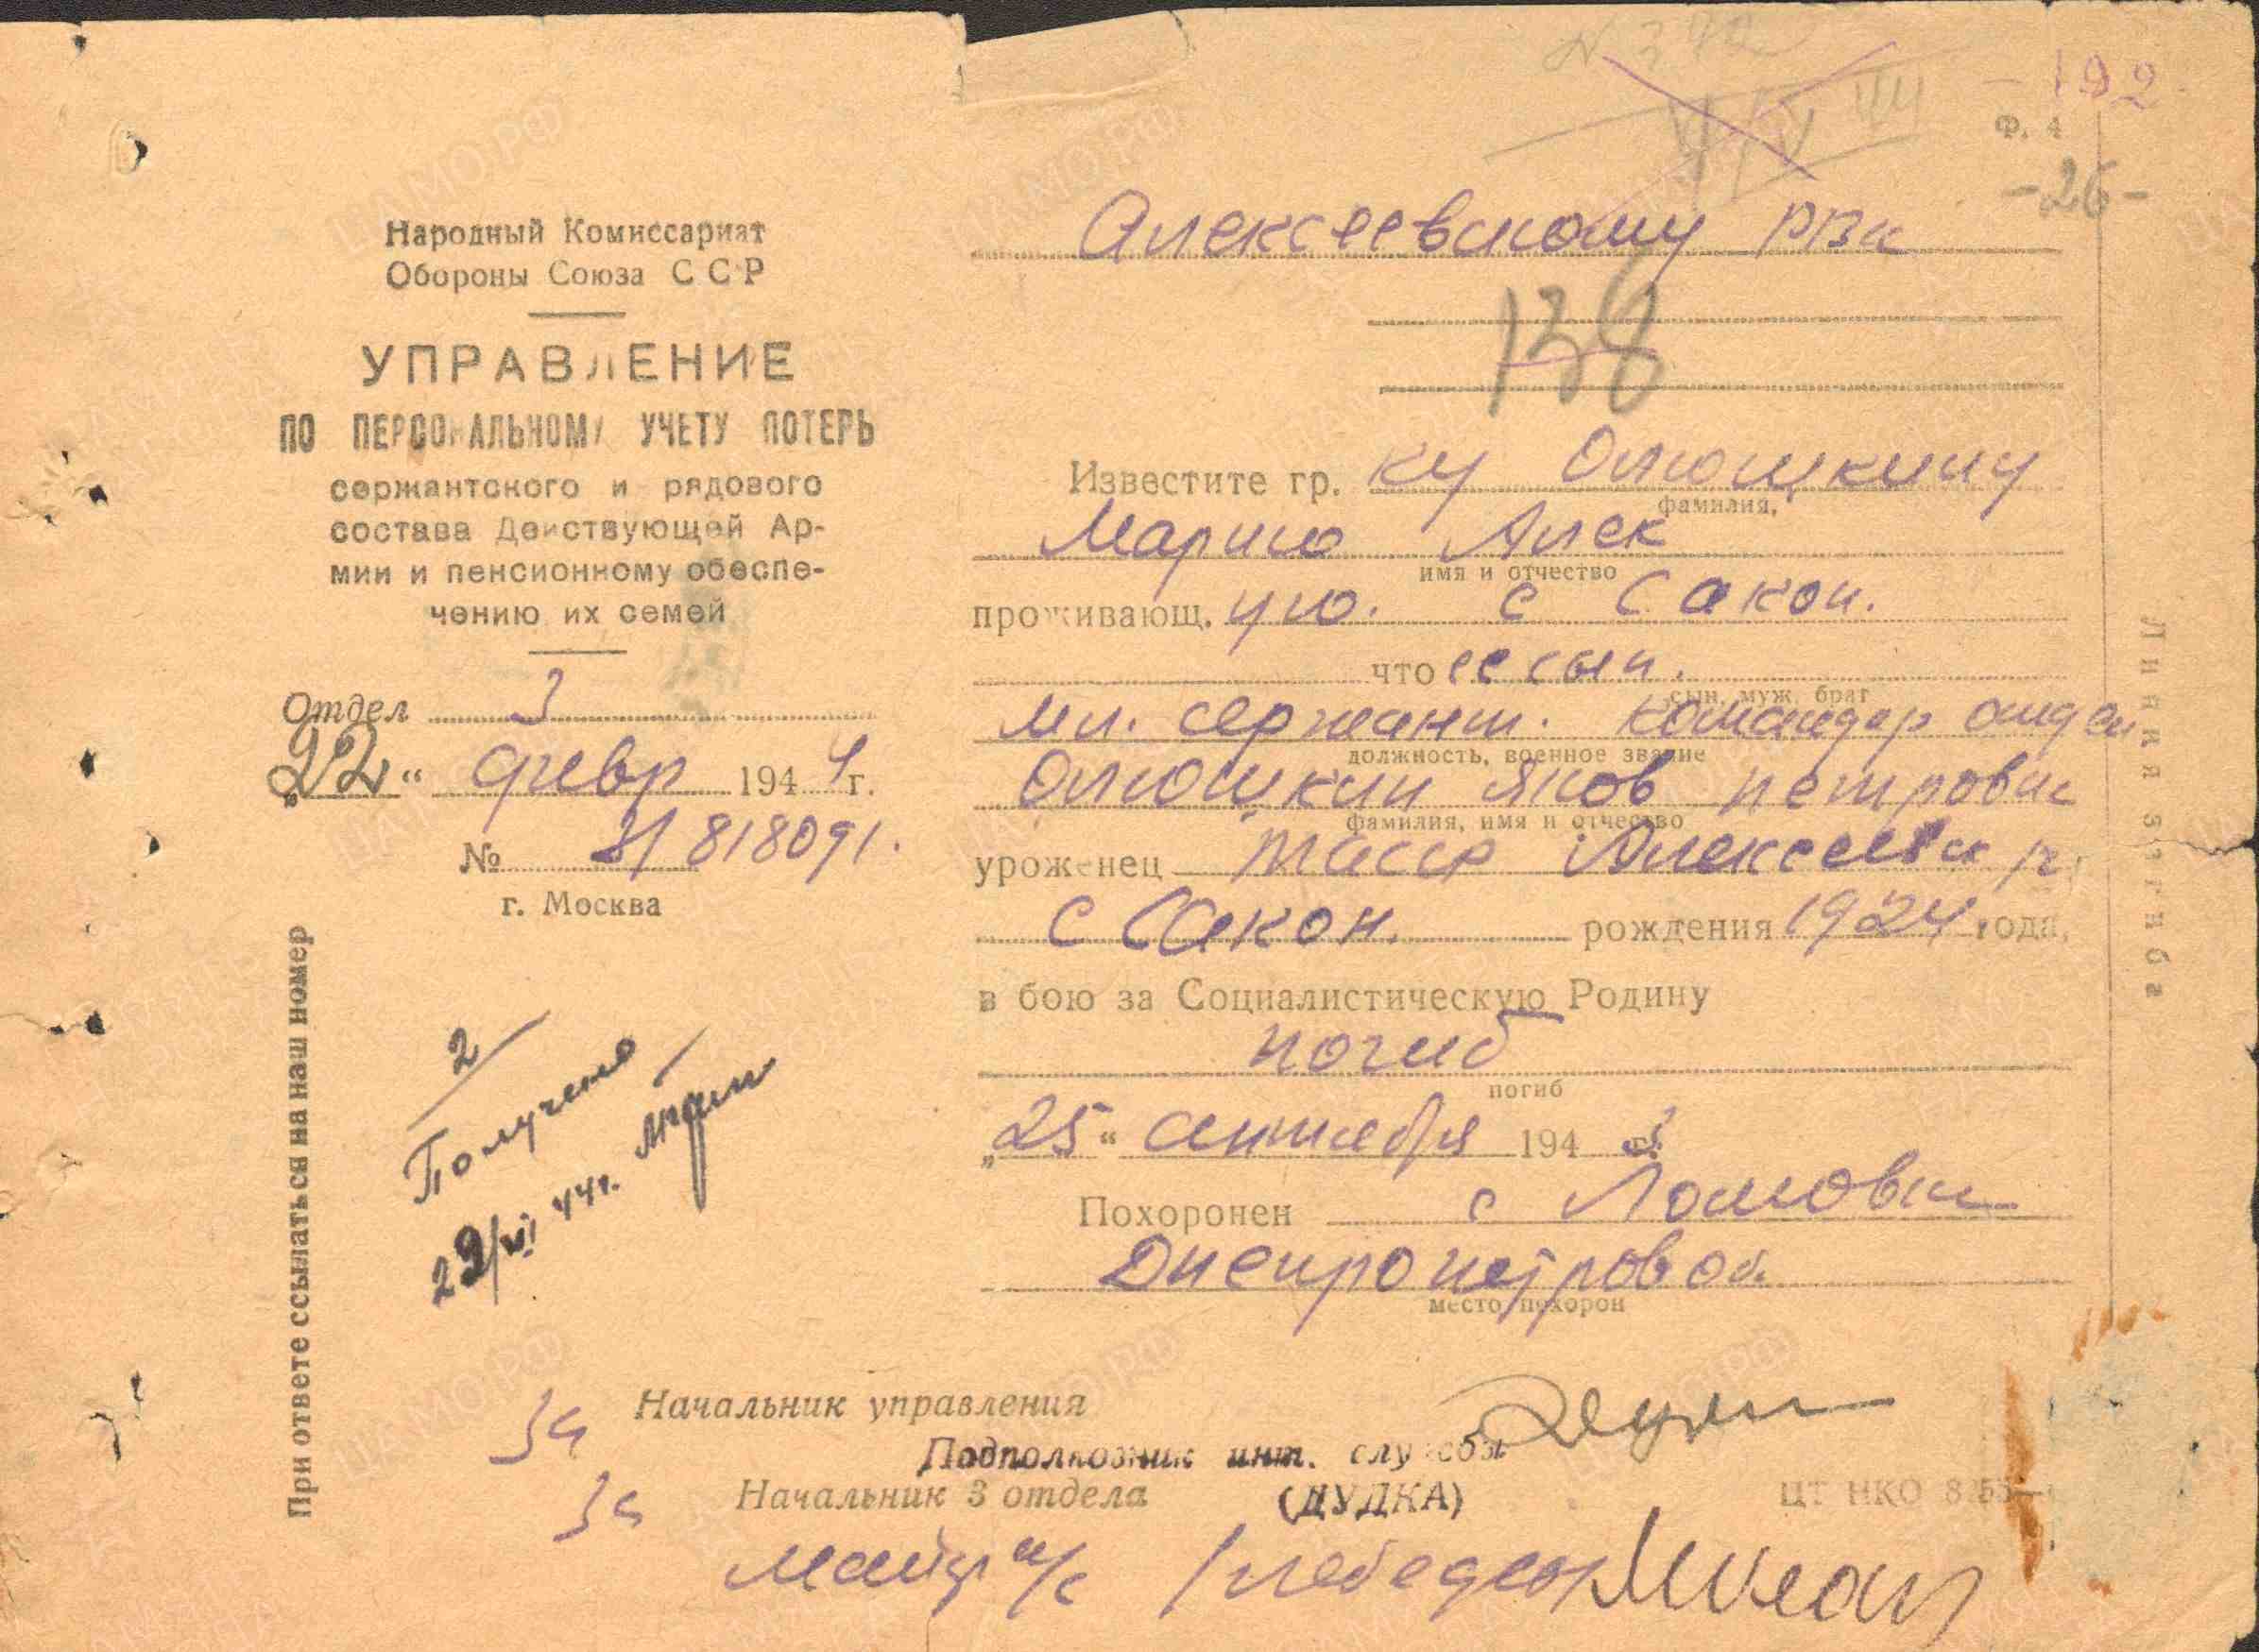 192
Ф. 4
-26-
Народный Комиссариат
Обороны Союза ССР
УПРАВЛЕНИЕ
ПО ПЕРСОНАЛЬНОМУ УЧЕТУ ПОТЕРЬ
сержантского и рядового
состава Действующей Ар-
мии и пенсионному обеспе-
чению их семей
Отдел 3
"22" февр 1944 г.
№ 818091.
г. Москва
При ответе ссылаться на наш номер
2/
Получено
29/VI 44г.
Алексеевскому РВк
138
Известите гр. ку Олюшкину
фамилия,
Марию Алек
имя и отчество
проживающ. ую. с Сакон.
что ее сын.
сын, муж, брат
мл. сержант. командир отдел
должность, военное звание
Олюшкин Яков петрович
фамилия, имя и отчество
уроженец Тасср Алексеевск р
с Сакон. рождения 1924 года,
в бою за Социалистическую Родину
погиб
погиб
"25" сентября 1943 г.
Похоронен с Ломовка
Днепропетров об.
место похорон
Линия загиба
За Начальник управления
Подполковник инт. службы
За Начальник 3 отдела (ДУДКА)
ЦТ НКО 8 55
майор а/с /Лебедев/